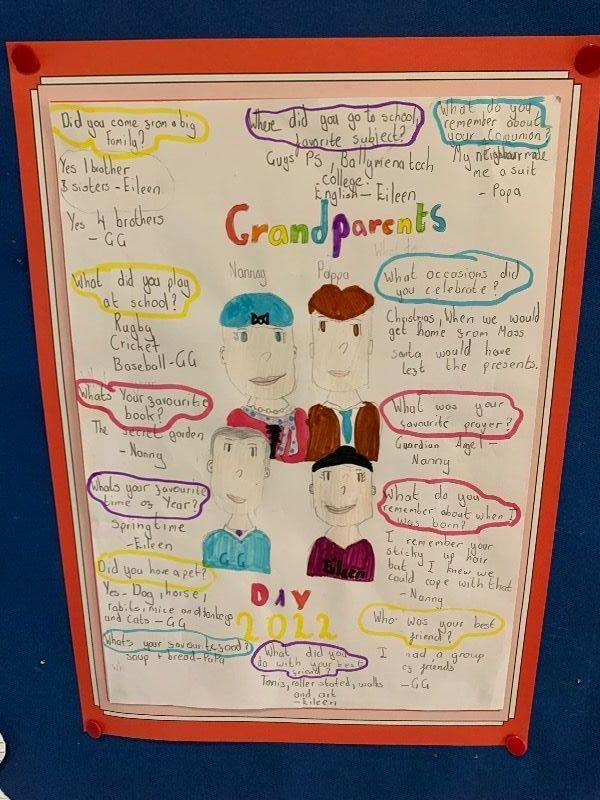 Did you come from a big
family?
Yes 1 brother
3 sisters - Eileen
Yes 4 brothers
- GG
Where did you go to school,
favorite subject?
Guys PS, Ballymena tech
college.
English - Eileen
What do you
remember about
your Comunion?
My neighbour made
me a suit
- Papa
Grandparents
Nannay
Pappa
What did you play
at school?
Rugby
Cricket
Baseball - GG
What occasions did
you celebrate?
Christmas, When we would
get home from Mass
santa would have
left the presents.
Whats Your favourite
book?
The secret garden
- Nanny
What was your
favourite prayer?
Guardian Angel -
Nanny
Whats your favourite
time of Year?
Springtime
- Eileen
What do you
remember about when I
was born?
I remember your
sticky up hair
but I knew we
could cope with that
- Nanny
GG
Eileen
Did you have a pet?
Yes - Dog, horse,
rabits, mice and donkeys
and cats - GG
DAY
2022
Who was your best
friend?
I had a group
of friends
- GG
Whats your favourite food?
soup + bread - Papa
What did you
do with your best
friend?
Tenis, roller skated, walks
and art
- Eileen